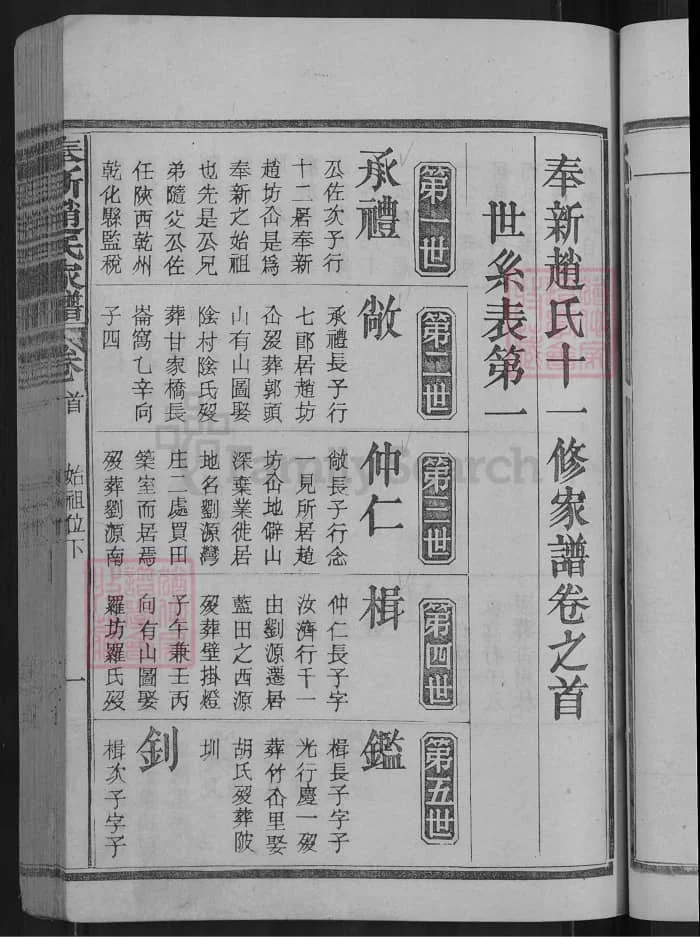 奉新趙氏十一修家譜卷之首
世系表第一
第一世
承禮
公佐次子行
十二居奉新
趙坊仚是為
奉新之始祖
也先是公兄
弟隨父公佐
任陝西乾州
乾化縣監稅
第二世
敞
承禮長子行
七郎居趙坊
仚歿葬郭頭
山有山圖娶
陰村陰氏歿
葬甘家橋長
崙窩乙辛向
子四
第三世
仲仁
敞長子行念
一見所居趙
坊仚地僻山
深棄業徙居
地名劉源灣
庄二處買田
築室而居焉
歿葬劉源南
第四世
楫
仲仁長子字
汝濟行千一
由劉源遷居
藍田之西源
歿葬壁掛燈
子午兼壬丙
向有山圖娶
羅坊羅氏歿
第五世
鑑
楫長子字子
光行慶一歿
葬竹仚里娶
胡氏歿葬陂
圳
釗
楫次子字子
奉新趙氏家譜
卷首
始祖位下
一
FamilySearch